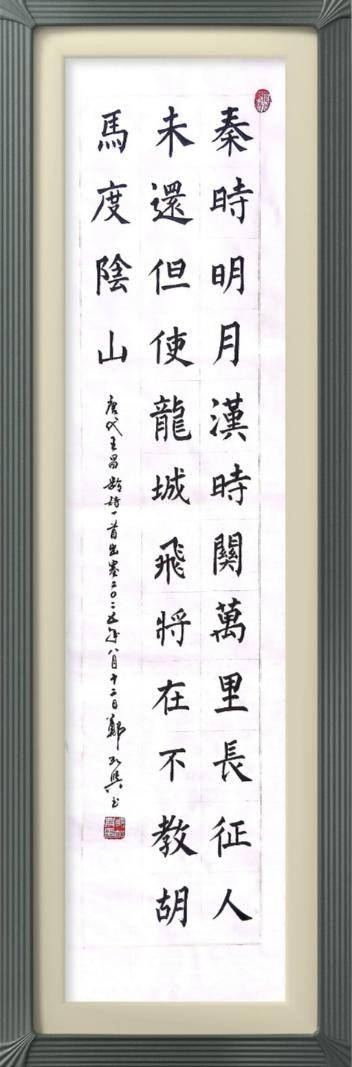 秦時明月漢時關萬里長征人
未還但使龍城飛將在不教胡
馬度陰山
唐代王昌齡詩一首出塞二〇二五年八月十二日鄭